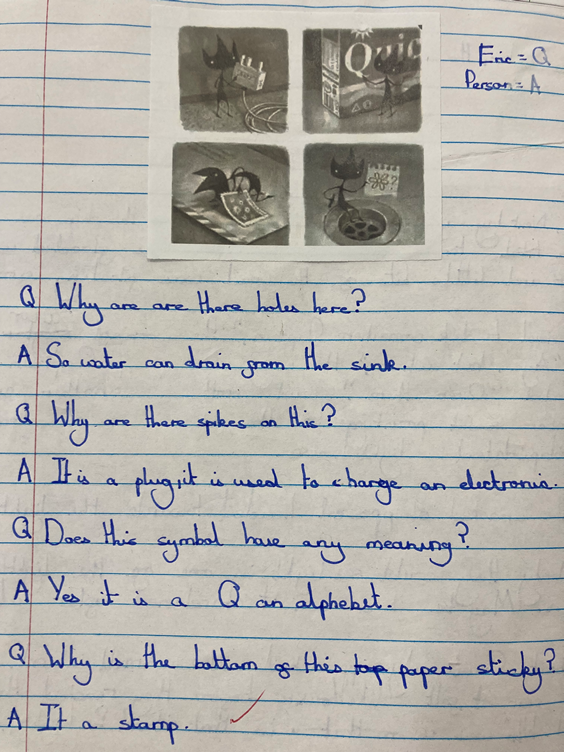 Quic
?
Eric = Q
Person = A
Q Why are are there holes here?
A So water can drain from the sink.
Q Why are there spikes on this?
A It is a plug, it is used to change an electronic.
Q Does this symbol have any meaning?
A Yes it is a Q an alphebet.
Q Why is the bottom of this top paper sticky?
A It a stamp.